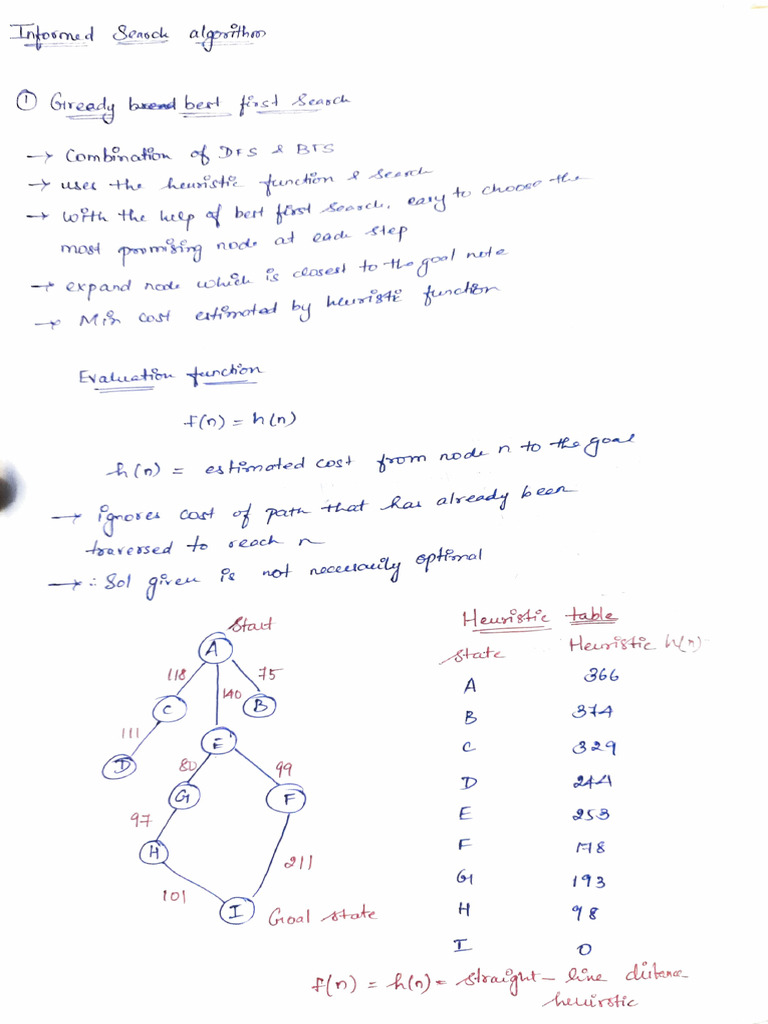 Informed Search algorithm
① Gready best first Search
→ Combination of DFS & BFS
→ uses the heuristic function & search
→ with the help of best first search, easy to choose the
most promising node at each step
→ expand node which is closest to the goal note
→ Min cost estimated by heuristic function
Evaluation function
f(n) = h(n)
h(n) = estimated cost from node n to the goal
→ ignores cost of path that has already been
traversed to reach n
→ ∴ Sol given is not necessarily optimal
Start
A
118
140
75
C
B
111
E
D
80
99
G
F
97
H
211
101
I
Goal state
Heuristic table
State Heuristic h(n)
A 366
B 374
C 329
D 244
E 253
F 178
G 193
H 98
I 0
f(n) = h(n) = straight - line distance
heuirstic